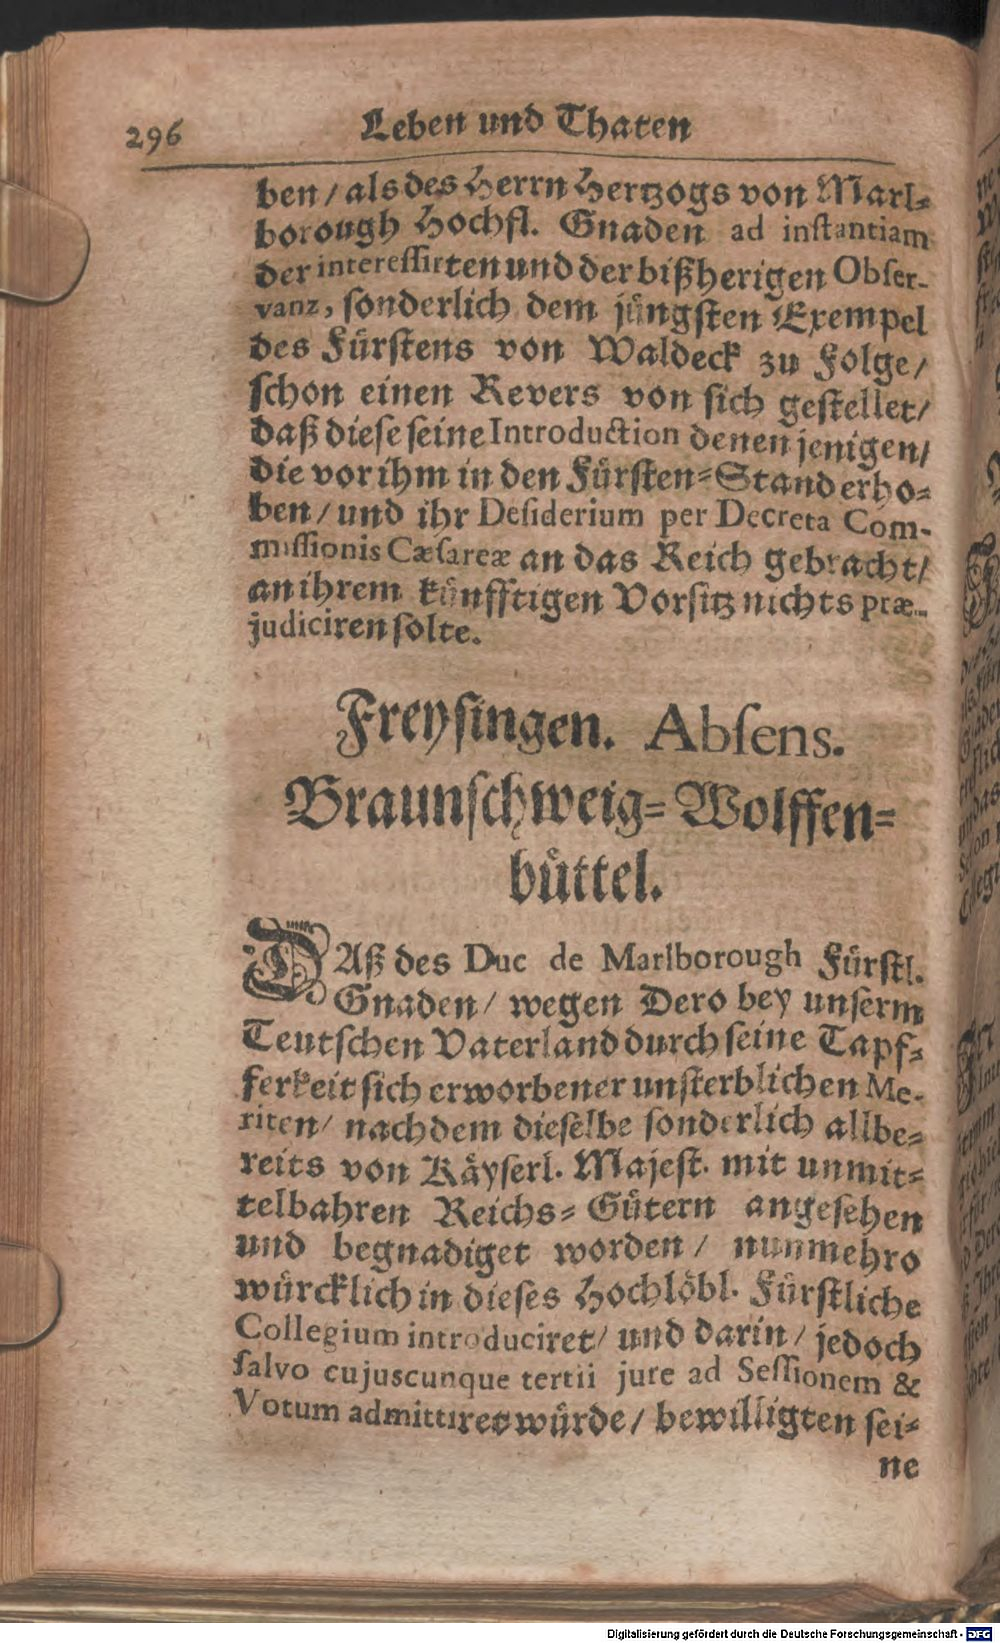 296 Leben und Thaten
ben / als des Herrn Hertzogs von Marl-
borough Hochfl. Gnaden ad instantiam
der interessirten und der bißherigen Obser-
vanz, sonderlich dem jüngsten Exempel
des Fürstens von Waldeck zu Folge /
schon einen Revers von sich gestellet /
daß diese seine Introduction denen jenigen /
die vor ihm in den Fürsten-Stand erho-
ben / und ihr Desiderium per Decreta Com-
missionis Cæsareæ an das Reich gebracht /
an ihrem künfftigen Vorsitz nichts præ-
judiciren solte.
Freysingen. Absens.
Braunschweig-Wolffen-
büttel.
DAß des Duc de Marlborough Fürstl.
Gnaden / wegen Dero bey unserm
Teutschen Vaterland durch seine Tapf-
ferkeit sich erworbener unsterblichen Me-
riten / nachdem dieselbe sonderlich allbe-
reits von Käyserl. Majest. mit unmit-
telbahren Reichs-Gütern angesehen
und begnadiget worden / nunmehro
würcklich in dieses Hochlöbl. Fürstliche
Collegium introduciret / und darin / jedoch
salvo cujuscunque tertii jure ad Sessionem &
Votum admittiret würde / bewilligten sei-
ne
Digitalisierung gefördert durch die Deutsche Forschungsgemeinschaft - DFG